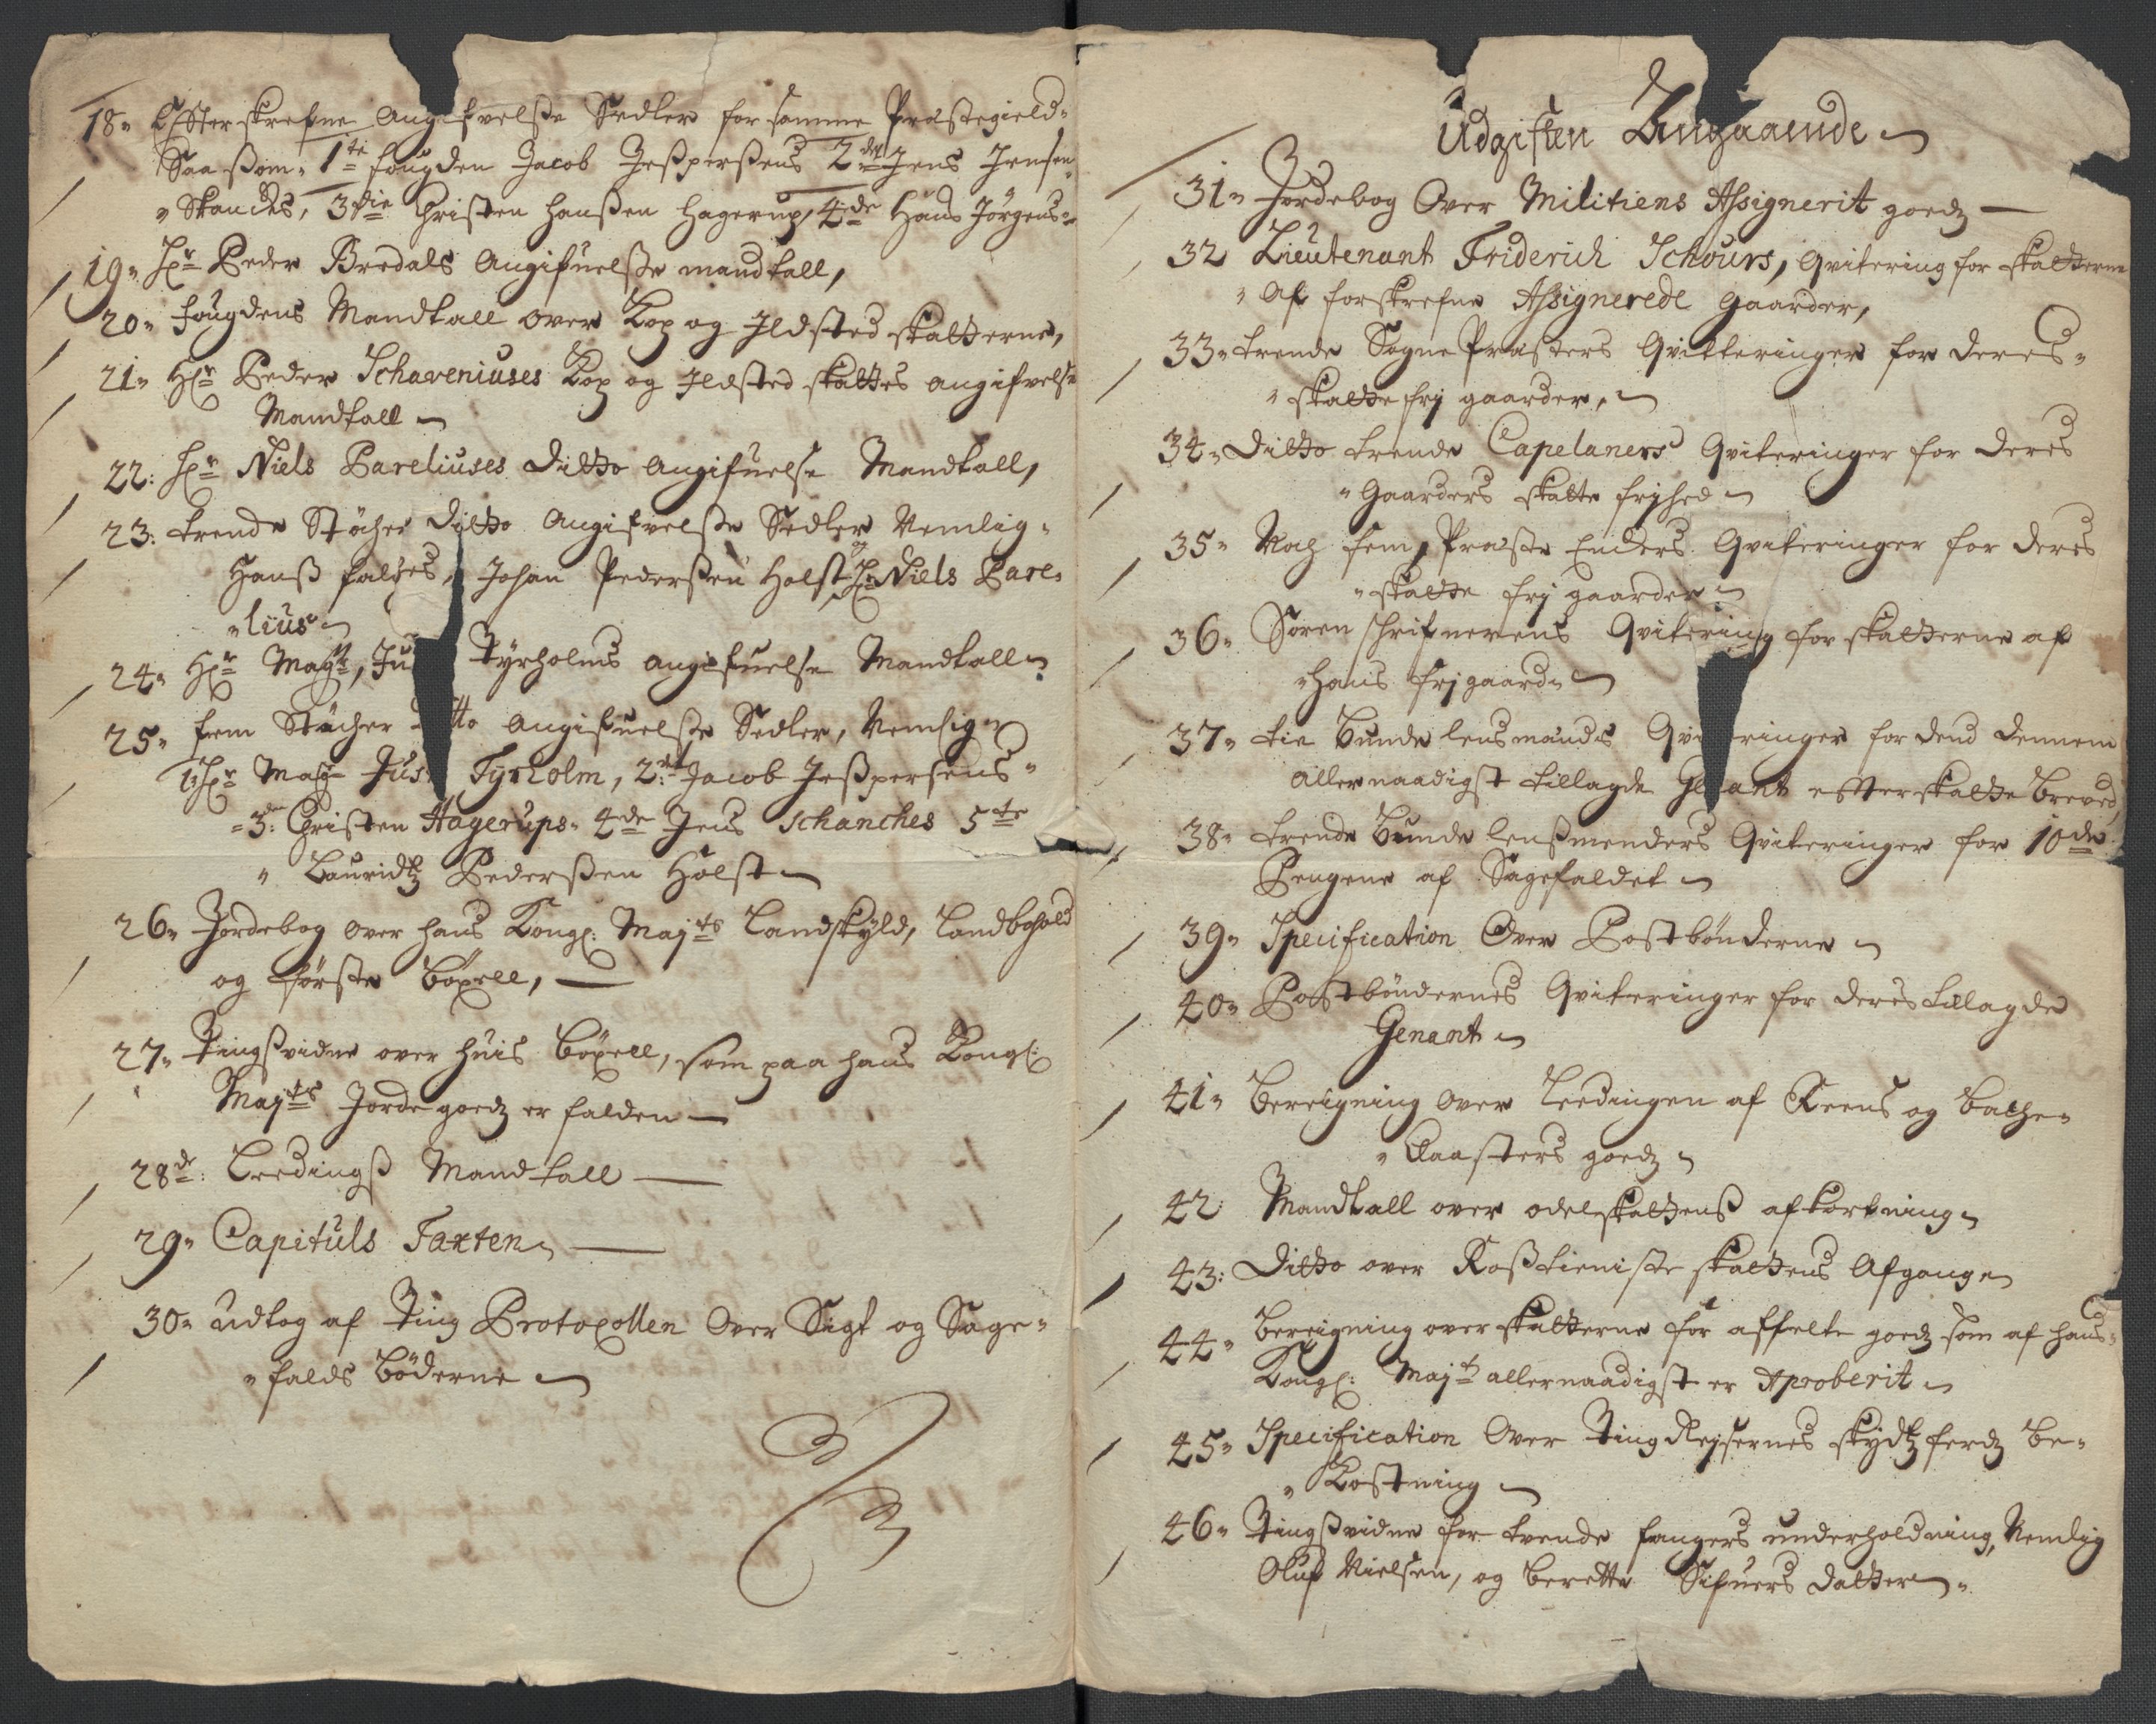 18= Effterskrefne Angifvelsse Sedler for samme Præstegield=
Saassom= 1te fougden Jacob Jesspersens 2den Jens Jensen
= Skanches, 3die Christen Hanssen Hagerup, 4de Hans Jörgens=
19= Hr Peder Bredals Angifuelsse mandtall,
20= fougdens Mandtall over Kop og Ildsted skatterne,
21= Hr Peder Schaveniuses Kop og Ildsted skattes angifvelse
Mandtall
22: Hr Niels Pareliuses Ditto Angifuelse Mandtall,
23: trende Støcher Ditto Angifvelsse Sedler Nemlig=
Hanss falches, Johan Pederssen Holst, og Hr Niels Pare=
=lius
24= Hr Magr, Ju Tyrholms angifuelse Mandtall
25= fem Støcher Ditto Angifuelsse Sedler, Nemlig
1: Hr Magr Just Tyrholm, 2den Jacob Jesspersens=
=3de: Christen Hagerups= 4de Jens Schanches 5te
= Lauridtz Pederssen Holst
26= Jordebog over hans Kongl: Majts Landskyld, Landbohold
og første böxell,
27= Tingssvidne over huis böxell, som paa hans Kongl:
Majts Jorde goedz er falden
28de: Leedingss Mandtall
29= Capituls Taxten
30= Udtog af Ting Protocollen Over Sigt og Sage=
=falds Böderne
Udgiften Angaaende
31= Jordebog Over Militiens Assignerit goedz
32 Lieutenant Friderich Schöurs, Qvitering for skatterne
= Af forskrefne Assignerede Gaarder,
33= trende Sogne Præsters Qvitteringer for deres=
= skatte frj gaarder,
34= Ditto trende Capelaners Qviteringer for deres
= Gaarders skatte frjhed
35= Nog fem, Præste Enckers Qviteringer for deres
= skatte frj gaarder
36= Søren schrifverens Qvitering for skatterne af
=hans frj gaard
37= tie bunde lensmænds Qvi ringer for dend dennem
allernaadigst tillagde Genant effter skatte brevet,
38= trende bunde lenssmenders Qviteringer for 10de
Pengene af Sagefaldet
39= Specification Over Postbönderne
40= Postböndernes Qviteringer for deres tillagde
Genant
41= Bereigning Over Leedingen af Reens og bache=
= Klaasters goedz
42 Mandtall over odelskattenss afkortning
43: Ditto over Rosstieniste skattens Afgang
44= Bereigning over skatterne for affelte goedz som af hans=
Kongl: Majt allernaadigst er Aproberit
45= Specification Over Ting Rejsernes skydtz ferdz be=
= Kostning
46= Tingssvidne for tvende fangers underholdning, Nemlig
Oluf Nielsen, og berette Sifuers datter